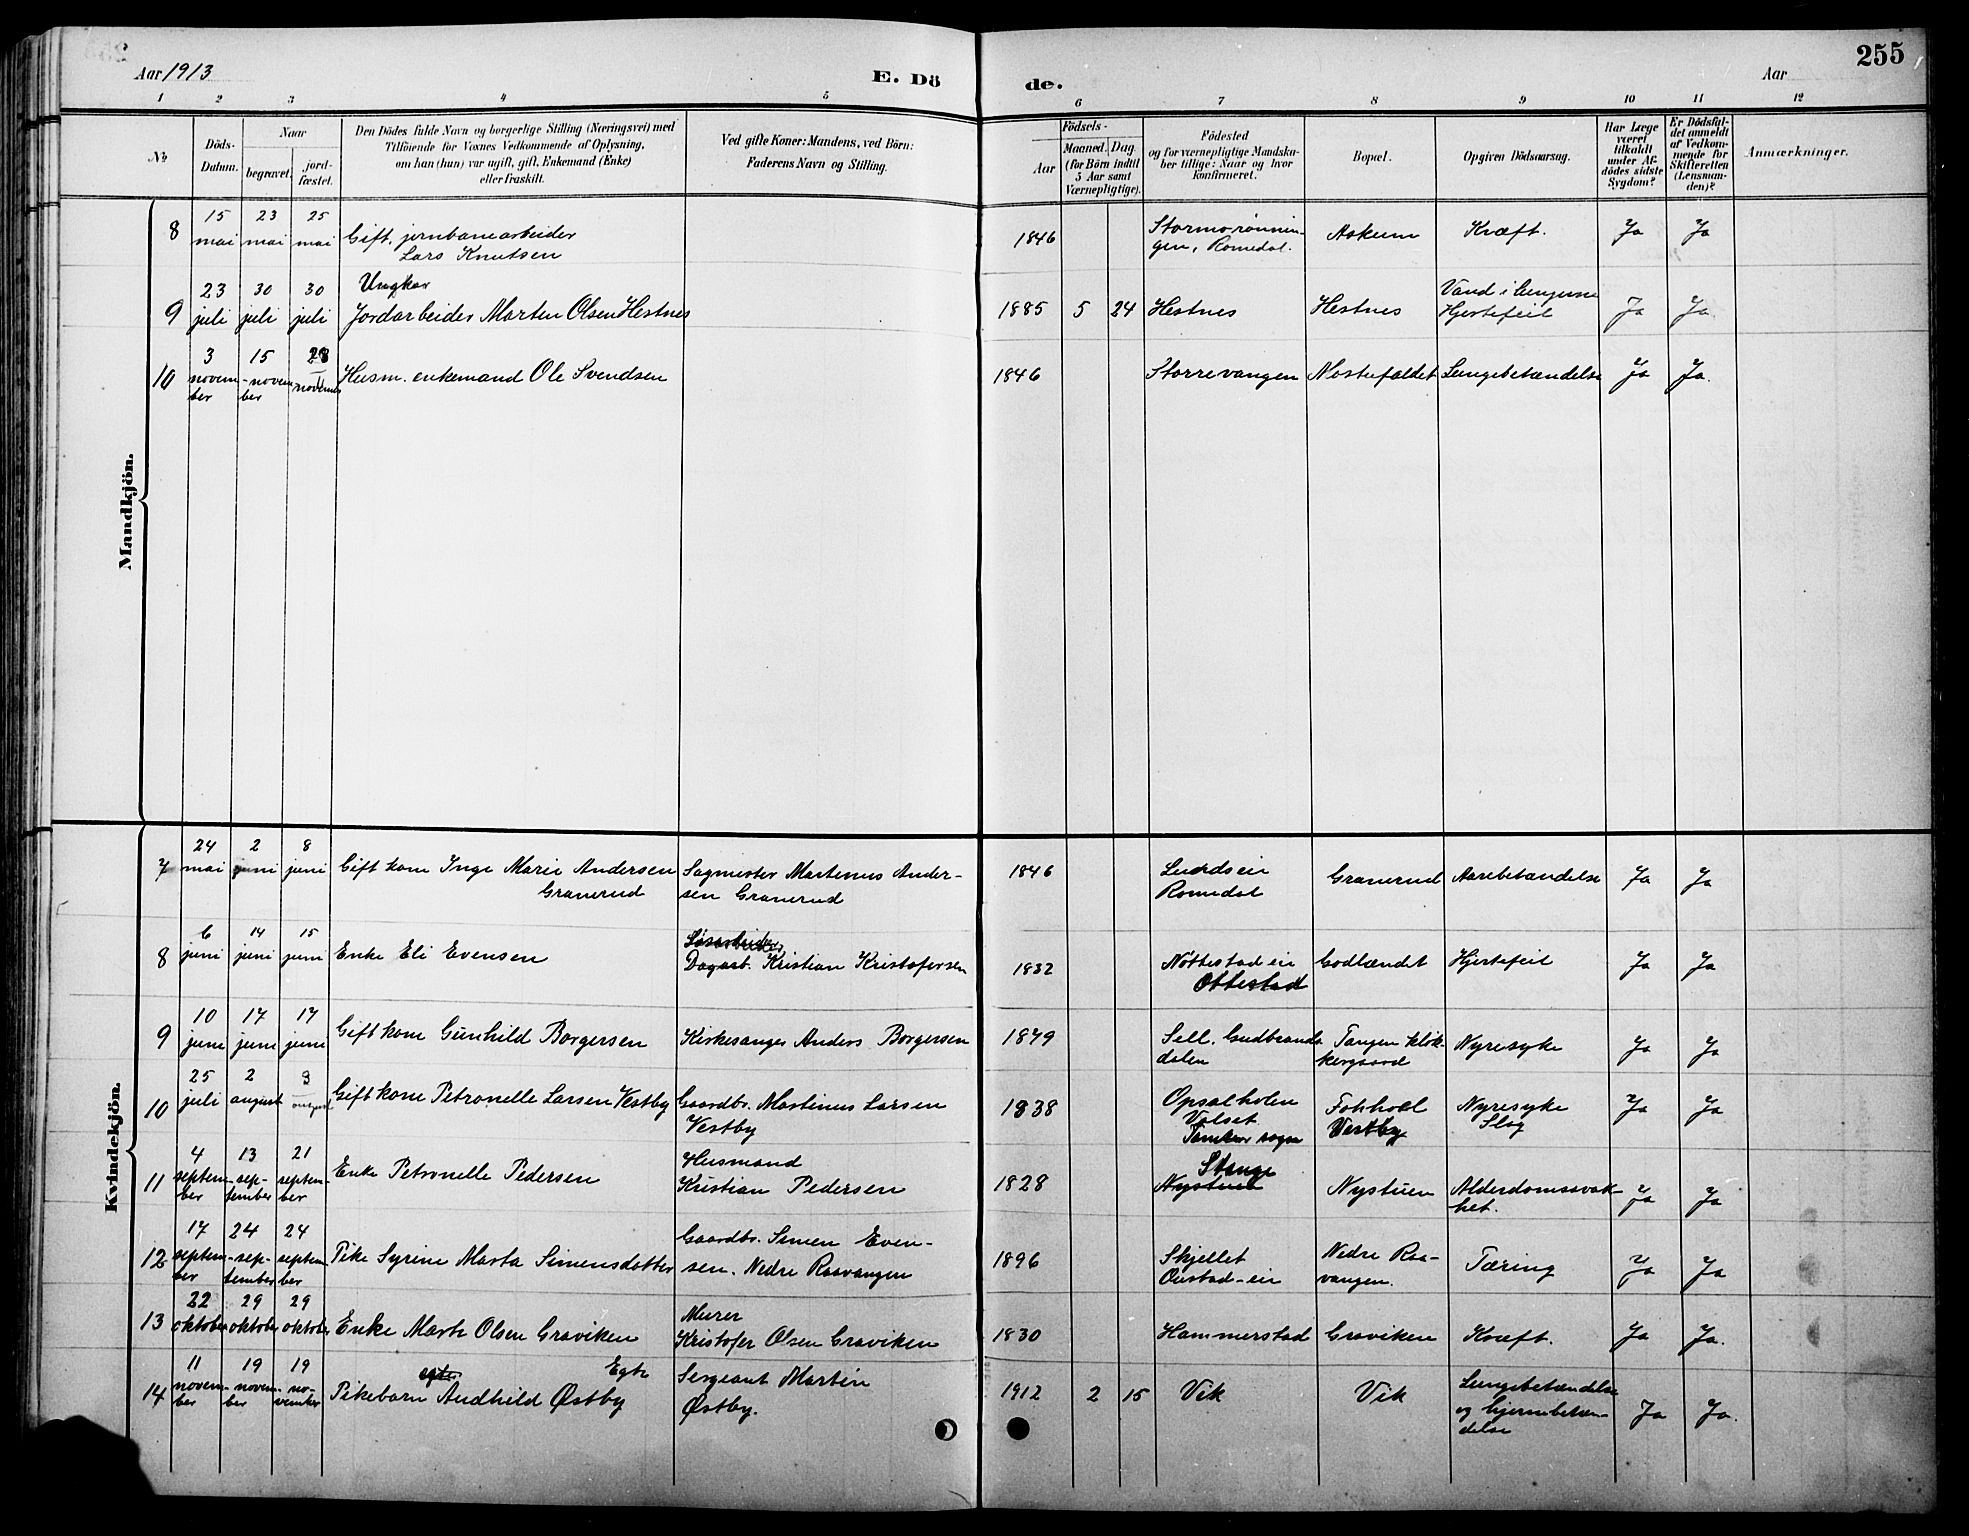 255
Aar 1913
E. Dö
de.
Aar
1 2 3 4 5 6 7 8 9 10 11 12
№
Döds-
Datum.
Naar
begravet.
jord-
fæstet.
Den Dödes fulde Navn og borgerlige Stilling (Næringsvei) med
Tilföiende for Voxnes Vedkommende af Oplysning,
om han (hun) var ugift, gift, Enkemand (Enke)
eller fraskilt.
Ved gifte Koner: Mandens, ved Börn:
Faderens Navn og Stilling.
Födsels-
Aar
Maaned. Dag.
(for Börn indtil
5 Aar samt
Værnepligtige).
Födested
og for værnepligtige Mandska-
ber tillige: Naar og hvor
konfirmeret.
Bopæl.
Opgiven Dödsaarsag.
Har Læge
været
tilkaldt
under Af-
dödes sidste
Sygdom?
Er Dödsfal-
det anmeldt
af Vedkom-
mende for
Skifteretten
(Lensman-
den)?
Anmærkninger.
Mandkjön.
8
15
mai
23
mai
25
mai
Gift. jernbanearbeider
Lars Knutsen
1846
Stormorønnin-
gen, Romedal.
Askum
Kræft.
Ja
Ja
9
23
juli
30
juli
30
juli
Ungkar
Jordarbeider Marten Olsen Hestnes
1885 5 24
Hestnes
Hestnes
Vand i lungerne
Hjertefeil
Ja
Ja.
10
3
novem-
ber
15
novem-
ber
28
november
Husm. enkemand Ole Svendsen
1846
Storrevangen
Nostufaldet
Lungebetændelse
Ja
Ja.
Kvindekjön.
7
24
mai
2
juni
8
juni
Gift kone Inge Marie Andersen
Granerud
Sagmester Martinus Ander-
sen Granerud
1846
Lundseie
Romedal
Granerud
Aarebetændelse
Ja
Ja
8
6
juni
14
juni
15
juni
Enke Eli Evensen
Dagarb. Kristian Kristofersen
1832
Nøttestad eie
Ottestad
Godlændet
Hjertefeil
Ja
Ja
9
10
juni
17
juni
17
juni
Gift kone Gunhild Borgersen
Kirkesanger Anders Borgersen
1849
Sell. Gudbrands
dalen
Tangen klok-
kergaard
Nyresyke
Ja
Ja
10
25
juli
2
august
3
august
Gift kone Petronelle Larsen Vestby
Gaardbr. Martinus Larsen
Vestby
1838
Opsalholen
Valset
sogn
Vestby
Nyresyke
Slag
Ja
Ja
11
4
septem-
ber
13
sep-
tember
21
septem-
ber
Enke Petronelle Pedersen
Husmand
Kristian Pedersen
1828
Stange
Nystuen
Nystuen
Alderdomssvak-
het.
Ja
Ja
12
17
septem-
ber
24
sep-
tember
24
septem-
ber
Pike Syrine Marta Simensdatter
Gaardbr. Simen Even-
sen. Nedre Raavangen
1896
Skjellet
Oustad-eie
Nedre Raa-
vangen.
Tæring
Ja
Ja
13
22
oktober
29
oktober
29
oktober
Enke Marte Olsen Graviken
Murer
Kristofer Olsen Graviken
1830
Hammerstad
Graviken
Kræft.
Ja
Ja.
14
11
novem-
ber
19
novem-
ber
19
no-
vember
egte
Egte
Pikebarn Audhild Østby
Sergeant Martin
Østby.
1912 2 15
Vik
Vik
Lungebetændelse
og hjernebetæn-
delse
Ja
Ja.